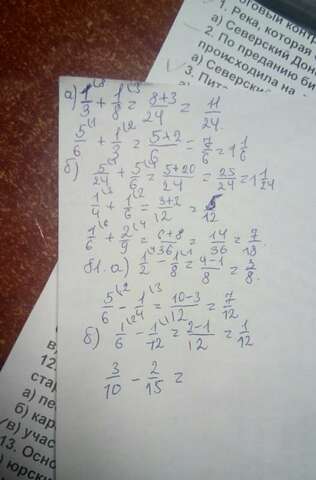 1. Река, которая
а) Северский Дон
2. По преданию би
происходила на
3. Пита
а) Северск
а) 1/3 + 1/8 = 8+3/24 = 11/24.
5/6 + 1/3 = 5+2/6 = 7/6 = 1 1/6
б) 5/24 + 5/6 = 5+20/24 = 25/24 = 1 1/24
1/4 + 1/6 = 3+2/12 = 5/12
1/6 + 2/9 = 6+8/36 = 14/36 = 7/18
б1. а) 1/2 - 1/8 = 4-1/8 = 3/8.
5/6 - 1/4 = 10-3/12 = 7/12
б) 1/6 - 1/12 = 2-1/12 = 1/12
3/10 - 2/15 =
12.
стар
а) пе
б) кар
в) учас
13. Осно
а) юрски